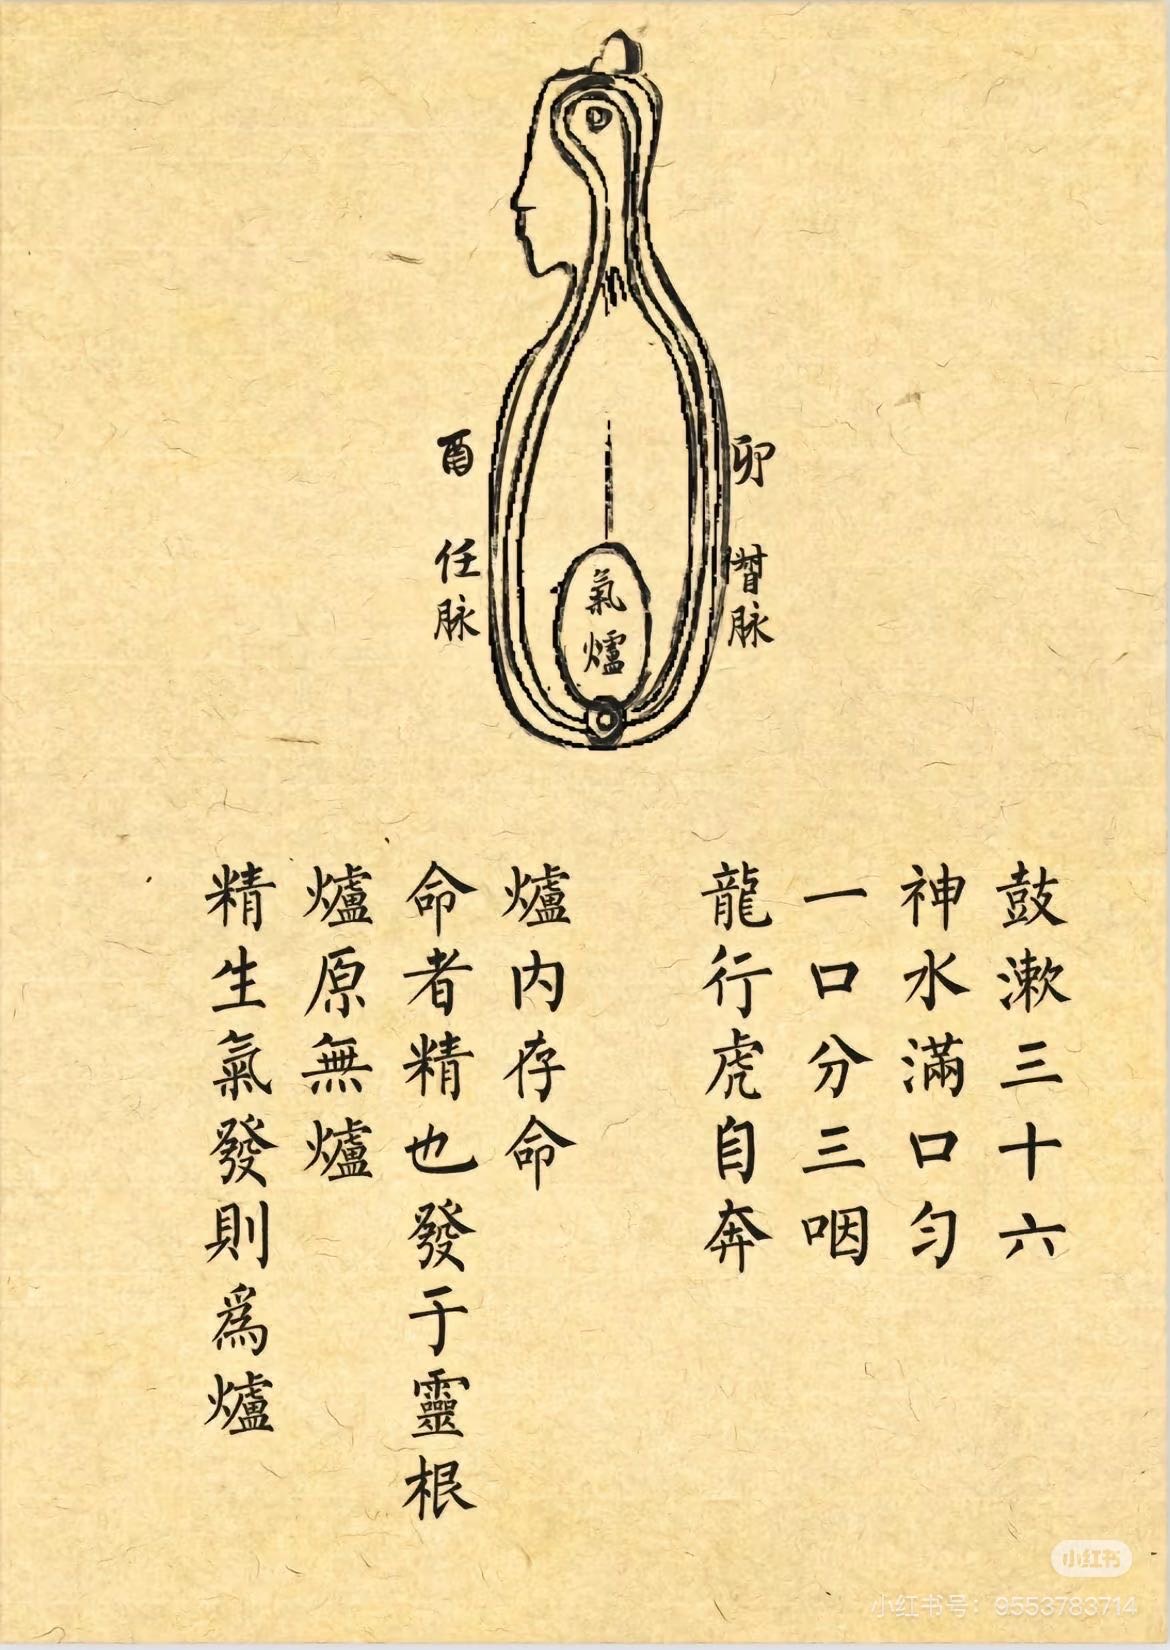 卯
督脉
酉
任脉
氣爐
鼓漱三十六
神水滿口匀
一口分三咽
龍行虎自奔
爐内存命
命者精也發于靈根
爐原無爐
精生氣發則為爐
小红书
小红书号：9553783714